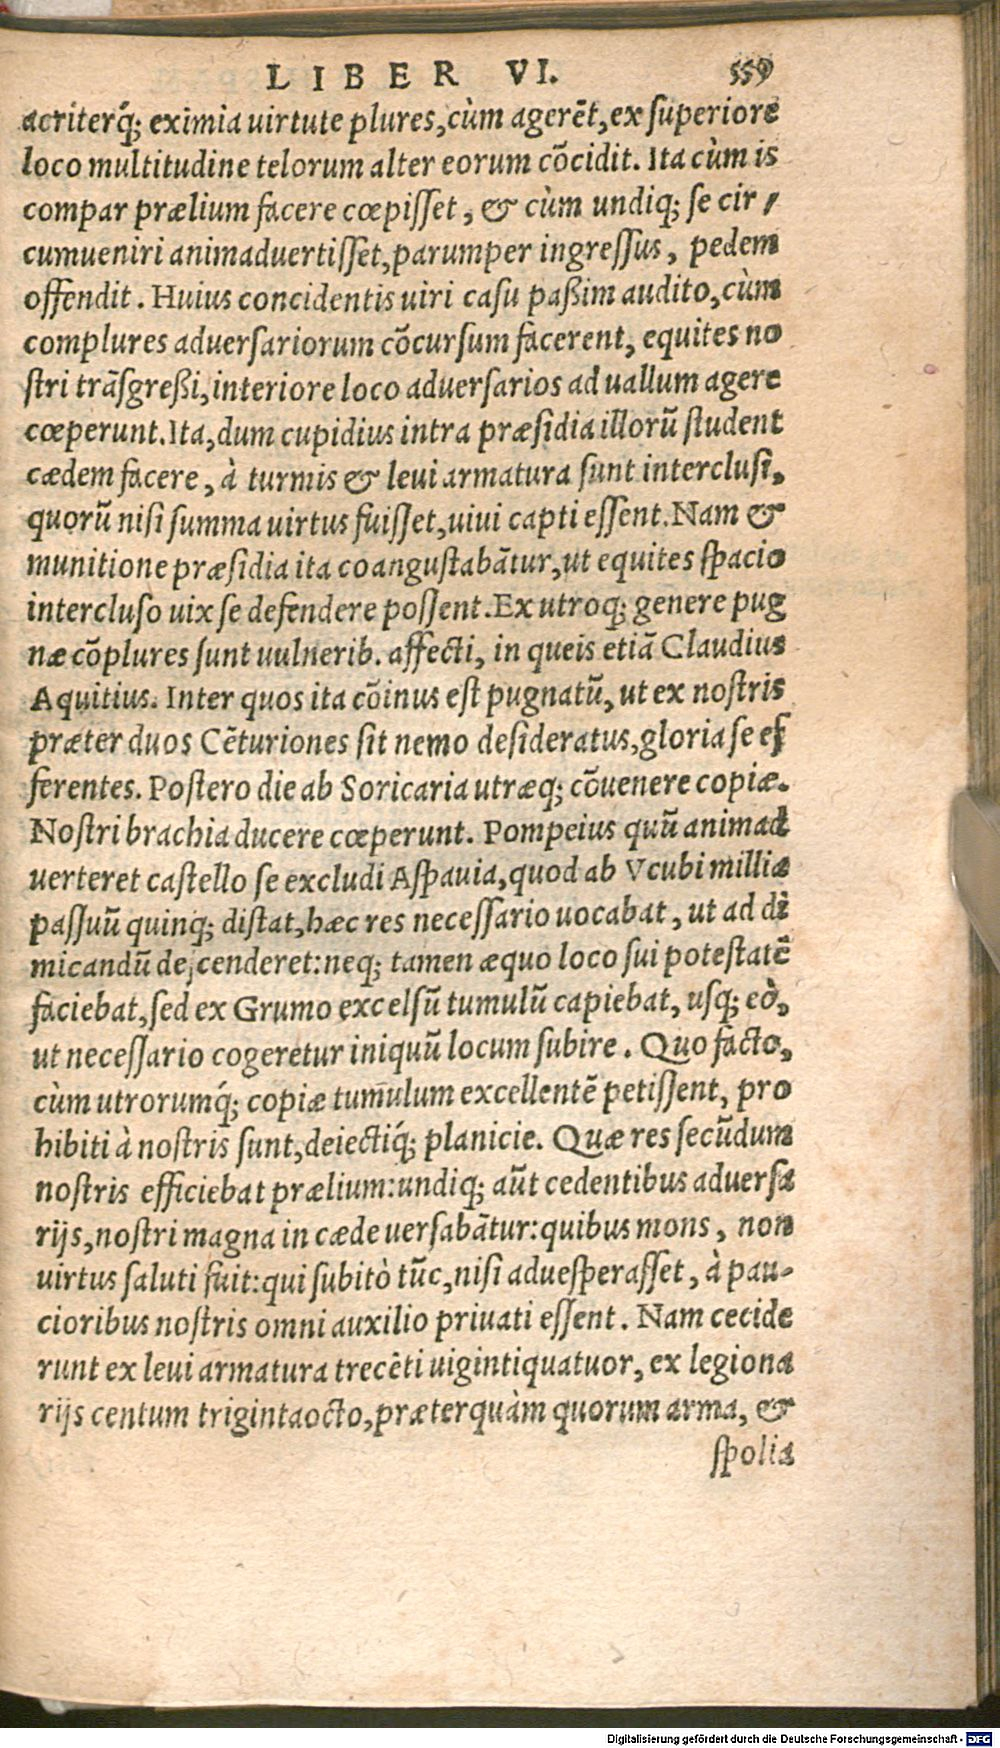 LIBER VI. 559
acriterq́; eximia uirtute plures, cùm agerẽt, ex ſuperiore
loco multitudine telorum alter eorum cõcidit. Ita cùm is
compar prælium facere cœpiſſet, & cùm undiq; ſe cir⸗
cumueniri animaduertiſſet, parumper ingreſſus, pedem
offendit. Huius concidentis uiri caſu paßim audito, cùm
complures aduerſariorum cõcurſum facerent, equites no
ſtri trãſgreßi, interiore loco aduerſarios ad uallum agere
cœperunt. Ita, dum cupidius intra præſidia illorũ ſtudent
cædem facere, à turmis & leui armatura ſunt intercluſi,
quorũ niſi ſumma uirtus fuiſſet, uiui capti eſſent. Nam &
munitione præſidia ita coanguſtabãtur, ut equites ſpacio
intercluſo uix ſe defendere poſſent. Ex utroq; genere pug
næ cõplures ſunt uulnerib. affecti, in queis etiã Claudius
Aquitius. Inter quos ita cõinus eſt pugnatũ, ut ex noſtris
præter duos Cẽturiones ſit nemo deſideratus, gloria ſe ef
ferentes. Poſtero die ab Soricaria utræq; cõuenere copiæ.
Noſtri brachia ducere cœperunt. Pompeius quũ animad
uerteret caſtello ſe excludi Aſpauia, quod ab Vcubi millia
paſſuũ quinq; diſtat, hæc res neceſſario uocabat, ut ad di
micandũ deſcenderet: neq; tamen æquo loco ſui poteſtatẽ
faciebat, ſed ex Grumo excelſũ tumulũ capiebat, uſq; eò,
ut neceſſario cogeretur iniquũ locum ſubire. Quo facto,
cùm utrorumq́; copiæ tum̃ulum excellentẽ petiſſent, pro
hibiti à noſtris ſunt, deiectiq́; planicie. Quæ res ſecũdum
noſtris efficiebat prælium: undiq; aũt cedentibus aduerſa
rijs, noſtri magna in cæde uerſabãtur: quibus mons, non
uirtus ſaluti fuit: qui ſubitò tũc, niſi adueſperaſſet, à pau-
cioribus noſtris omni auxilio priuati eſſent. Nam cecide
runt ex leui armatura trecẽti uigintiquatuor, ex legiona
rijs centum trigintaocto, præterquàm quorum arma, &
ſpolia
Digitalisierung gefördert durch die Deutsche Forschungsgemeinschaft - DFG